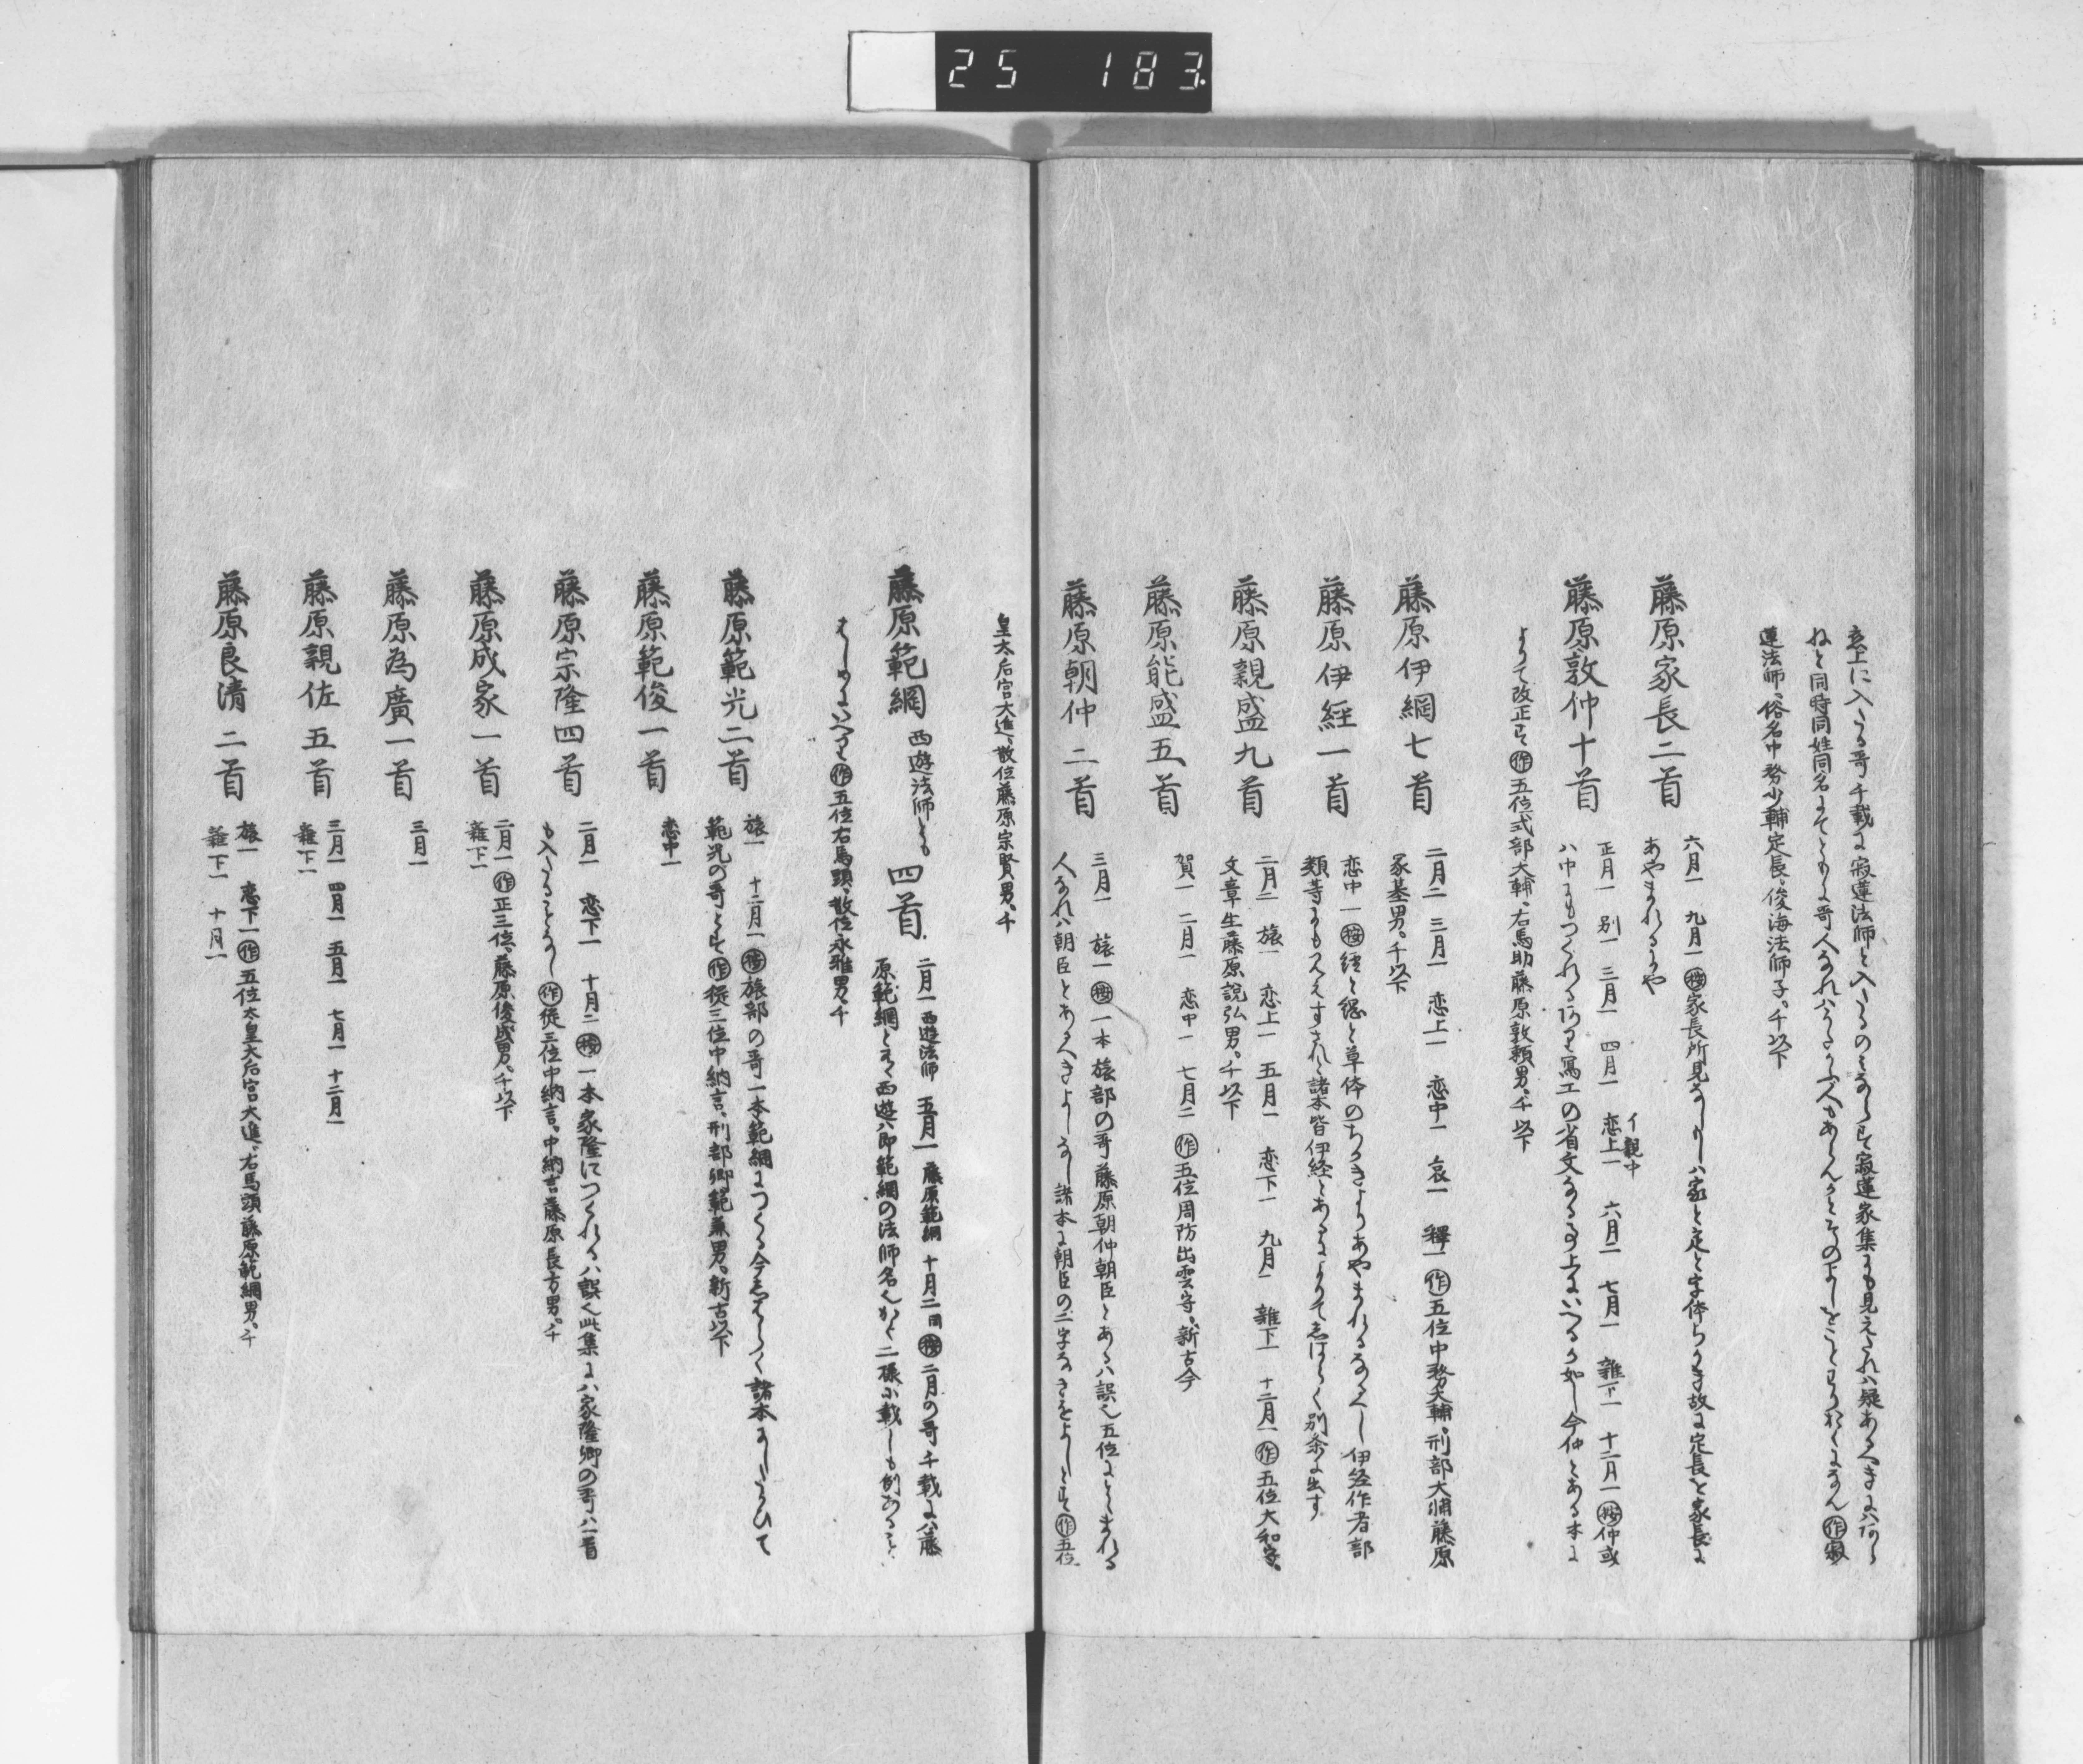 25 183.
恋上に入たる哥千載に寂蓮法師と入
寂蓮家集にも見えされハ疑あ
ねと同時同姓同名
哥人なれハ
㊑寂
蓮法師、俗名中務少輔定長、俊海法師子。千以下
藤原家長二首
六月一 九月一 ㊙家長所見なし
家と定と字体ちかき故に定長を家長に
あやまれるにや
藤原敦仲十首
正月一 別一 三月一 四月一 恋上一 六月二 七月一 雑下一 十二月一 ㊙仲或
イ親中
ハ中にもつくれる
写工の省文なる事上にいへるか如し今仲とある本に
よりて改正す 作 五位式部大輔、右馬助藤原敦頼男。千以下
藤原伊綱七首
二月二 三月一 恋上一 恋中一 哀一 釋一 作 五位中務大輔、刑部大輔藤原
家基男。千以下
藤原伊経一首
恋中一
草体のちかきよりあやまれるなるへし伊経作者部
類等にも
諸本皆伊経とあるによりて
別条に出す
藤原親盛九首
二月二 旅一 恋上一 五月一 恋下一 九月一 雑下一 十二月一 作 五位大和守、
文章生藤原説弘男。千以下
藤原能盛五首
賀一 二月一 恋中一 七月二 作 五位周防出雲守。新古今
藤原朝仲二首
三月一 旅一
一本旅部の哥藤原朝仲朝臣とあるハ誤也五位にとゝまれる
人なれハ朝臣とあるへきよしなし諸本に朝臣の二字なきをよしとす 作 五位
皇太后宮大進、散位藤原宗賢男。千
藤原範綱 西遊法師とも 四首
二月一 西遊法師 五月一 藤原範綱 十月二 同
二月の哥千載にハ藤
原範綱とあり西遊ハ即範綱の法師名也かく二様に載しも例あること
はしめにいへり 作 五位右馬頭、散位永雅男。千
藤原範光二首
旅一 十二月一
旅部の哥一本範綱につくる今
諸本にしたかひて
範光の哥とす 作 従三位中納言、刑部卿範兼男。新古以下
藤原範俊一首
恋中一
藤原宗隆四首
二月一 恋下一 十月二
一本家隆につくれるハ誤也此集にハ家隆卿の哥ハ一首
も入たることなし 作 従三位中納言、中納言藤原長方男。千
藤原成家一首
二月一 作 正三位、藤原俊成男。千以下
雑下一
藤原為廣一首
三月一
藤原親佐五首
三月一 四月一 五月一 七月一 十二月一
雑下一
藤原良清二首
旅一 恋下一 作 五位太皇太后宮大進、右馬頭藤原範綱男。千
雑下一 十月一